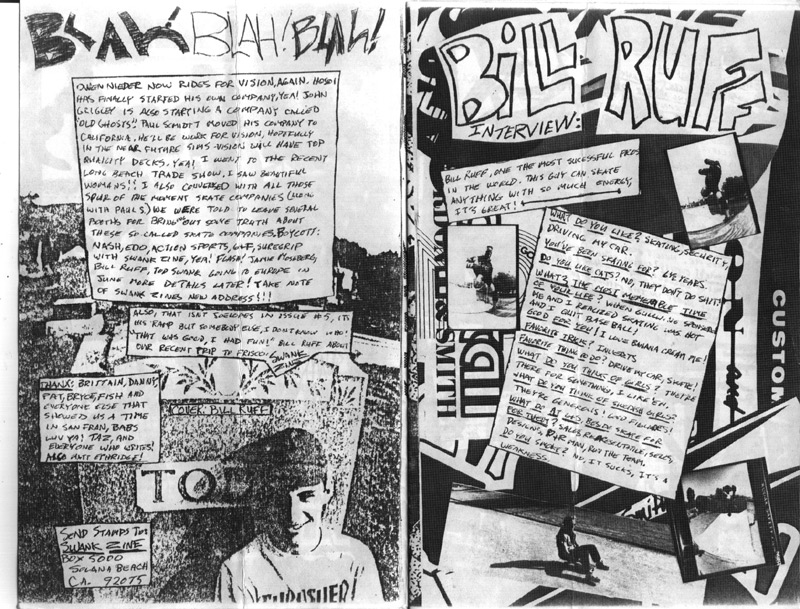 BLAH BLAH! BLAH!
OWEN NIEDER NOW RIDES FOR VISION, AGAIN. HOSOI
HAS FINALLY STARTED HIS OWN COMPANY, YEA! JOHN
GRIGLEY IS ALSO STARTING A COMPANY CALLED
"OLD GHOSTS". PAUL SCHMIDT MOVED HIS COMPANY TO
CALIFORNIA. HE'LL BE WORK FOR VISION, HOPEFULLY
IN THE NEAR FUTURE SIMS-VISION WILL HAVE TOP
QUALITY DECKS. YEA! I WENT TO THE RECENT
LONG BEACH TRADE SHOW. I SAW BEAUTIFUL
WOMANS!! I ALSO CONVERSED WITH ALL THESE
SPUR OF THE MOMENT SKATE COMPANIES (ALONG
WITH PAUL S.) WE WERE TOLD TO LEAVE SEVERAL
BOOTHS FOR BRING OUT SOME TRUTH ABOUT
THESE SO CALLED SKATE COMPANIES. BOYCOTT:
NASH, EDO, ACTION SPORTS, SUREGRIP
WITH SWANK ZINE, YEA! FLASH! JAMIE MOSBERG,
BILL RUFF, TOD SWANK GOING TO EUROPE IN
JUNE MORE DETAILS LATER! TAKE NOTE
OF SWANK ZINES NEW ADDRESS!!!
ALSO, THAT ISN'T IN ISSUE #5, IT'S
HIS RAMP BUT SOMEBODY ELSE, I DON'T KNOW WHO!
"THAT WAS GOOD, I HAD FUN!" BILL RUFF ABOUT
OUR RECENT TRIP TO FRISCO. SWANK
ZINE
THANX: BRITTAIN, DANNY,
PAT, BRYCE, FISH AND
EVERYONE ELSE THAT
SHOWED US A TIME
IN SAN FRAN, BABS
LUV YA! TAZ, AND
EVERYONE WHO WRITES!
ALSO MATT ETHRIDGE!
COVER: BILL RUFF
TOD
SEND STAMPS TO:
SWANK ZINE
BOX 5000
SOLANA BEACH
CA. 92075
THRASHER!
BILL RUFF
INTERVIEW:
BILL RUFF, ONE THE MOST SUCESSFUL PROS
IN THE WORLD. THIS GUY CAN SKATE
ANYTHING WITH SO MUCH ENERGY,
IT'S GREAT!
WHAT DO YOU LIKE? SKATING, SECURITY,
DRIVING MY CAR.
YOU'VE BEEN SKATING FOR? 6½ YEARS.
DO YOU LIKE CATS? NO, THEY DON'T DO SHIT!
WHAT'S THE MOST MEMORABLE TIME
OF YOUR LIFE? WHEN GULLWING SPONSORED
ME AND I REALIZED SKATING WAS HOT
AND I QUIT BASEBALL!
GOOD FOR YOU! I LOVE BANANA CREAM PIE!
FAVORITE TRICK? INVERTS
FAVORITE THING TO DO? DRIVE MY CAR, SKATE!
WHAT DO YOU THINK OF GIRLS? THEY'RE
THERE FOR SOMETHING, I LIKE EM.
WHAT DO YOU THINK OF GIRLS?
THEYRE GENEROUS! GOOD FIGURES!
WHAT DO AT BESIDE SKATE FOR
THEM? SALES REPRESENTATIVE, SALES,
DESIGNG, R+R MAN, RUN THE TEAM,
DO YOU SMOKE? NO, IT SUCKS, IT'S A
WEAKNESS.
& SMITH
CUSTOM